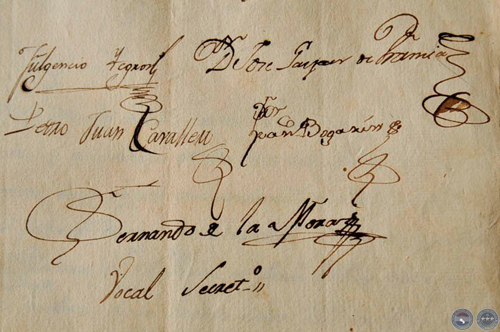 Fulgencio Yegros Dr. Jose Gaspar de Francia
Pedro Juan Cavallero Dr. Fran.co Bogarin
Fernando de la Mora
Vocal Secret.o